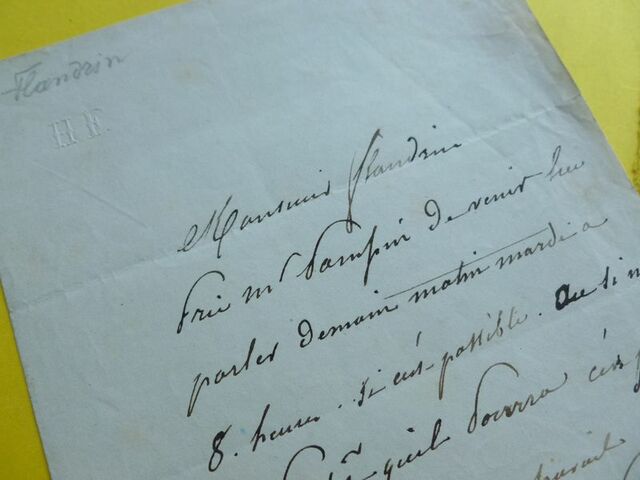 Flandrin
H F.
Monsieur Flandrin
Prie mr de venir lui
parler demain matin mardi a
8. heures. Si c'es possible. Ou si
qu'il Pourra
travail